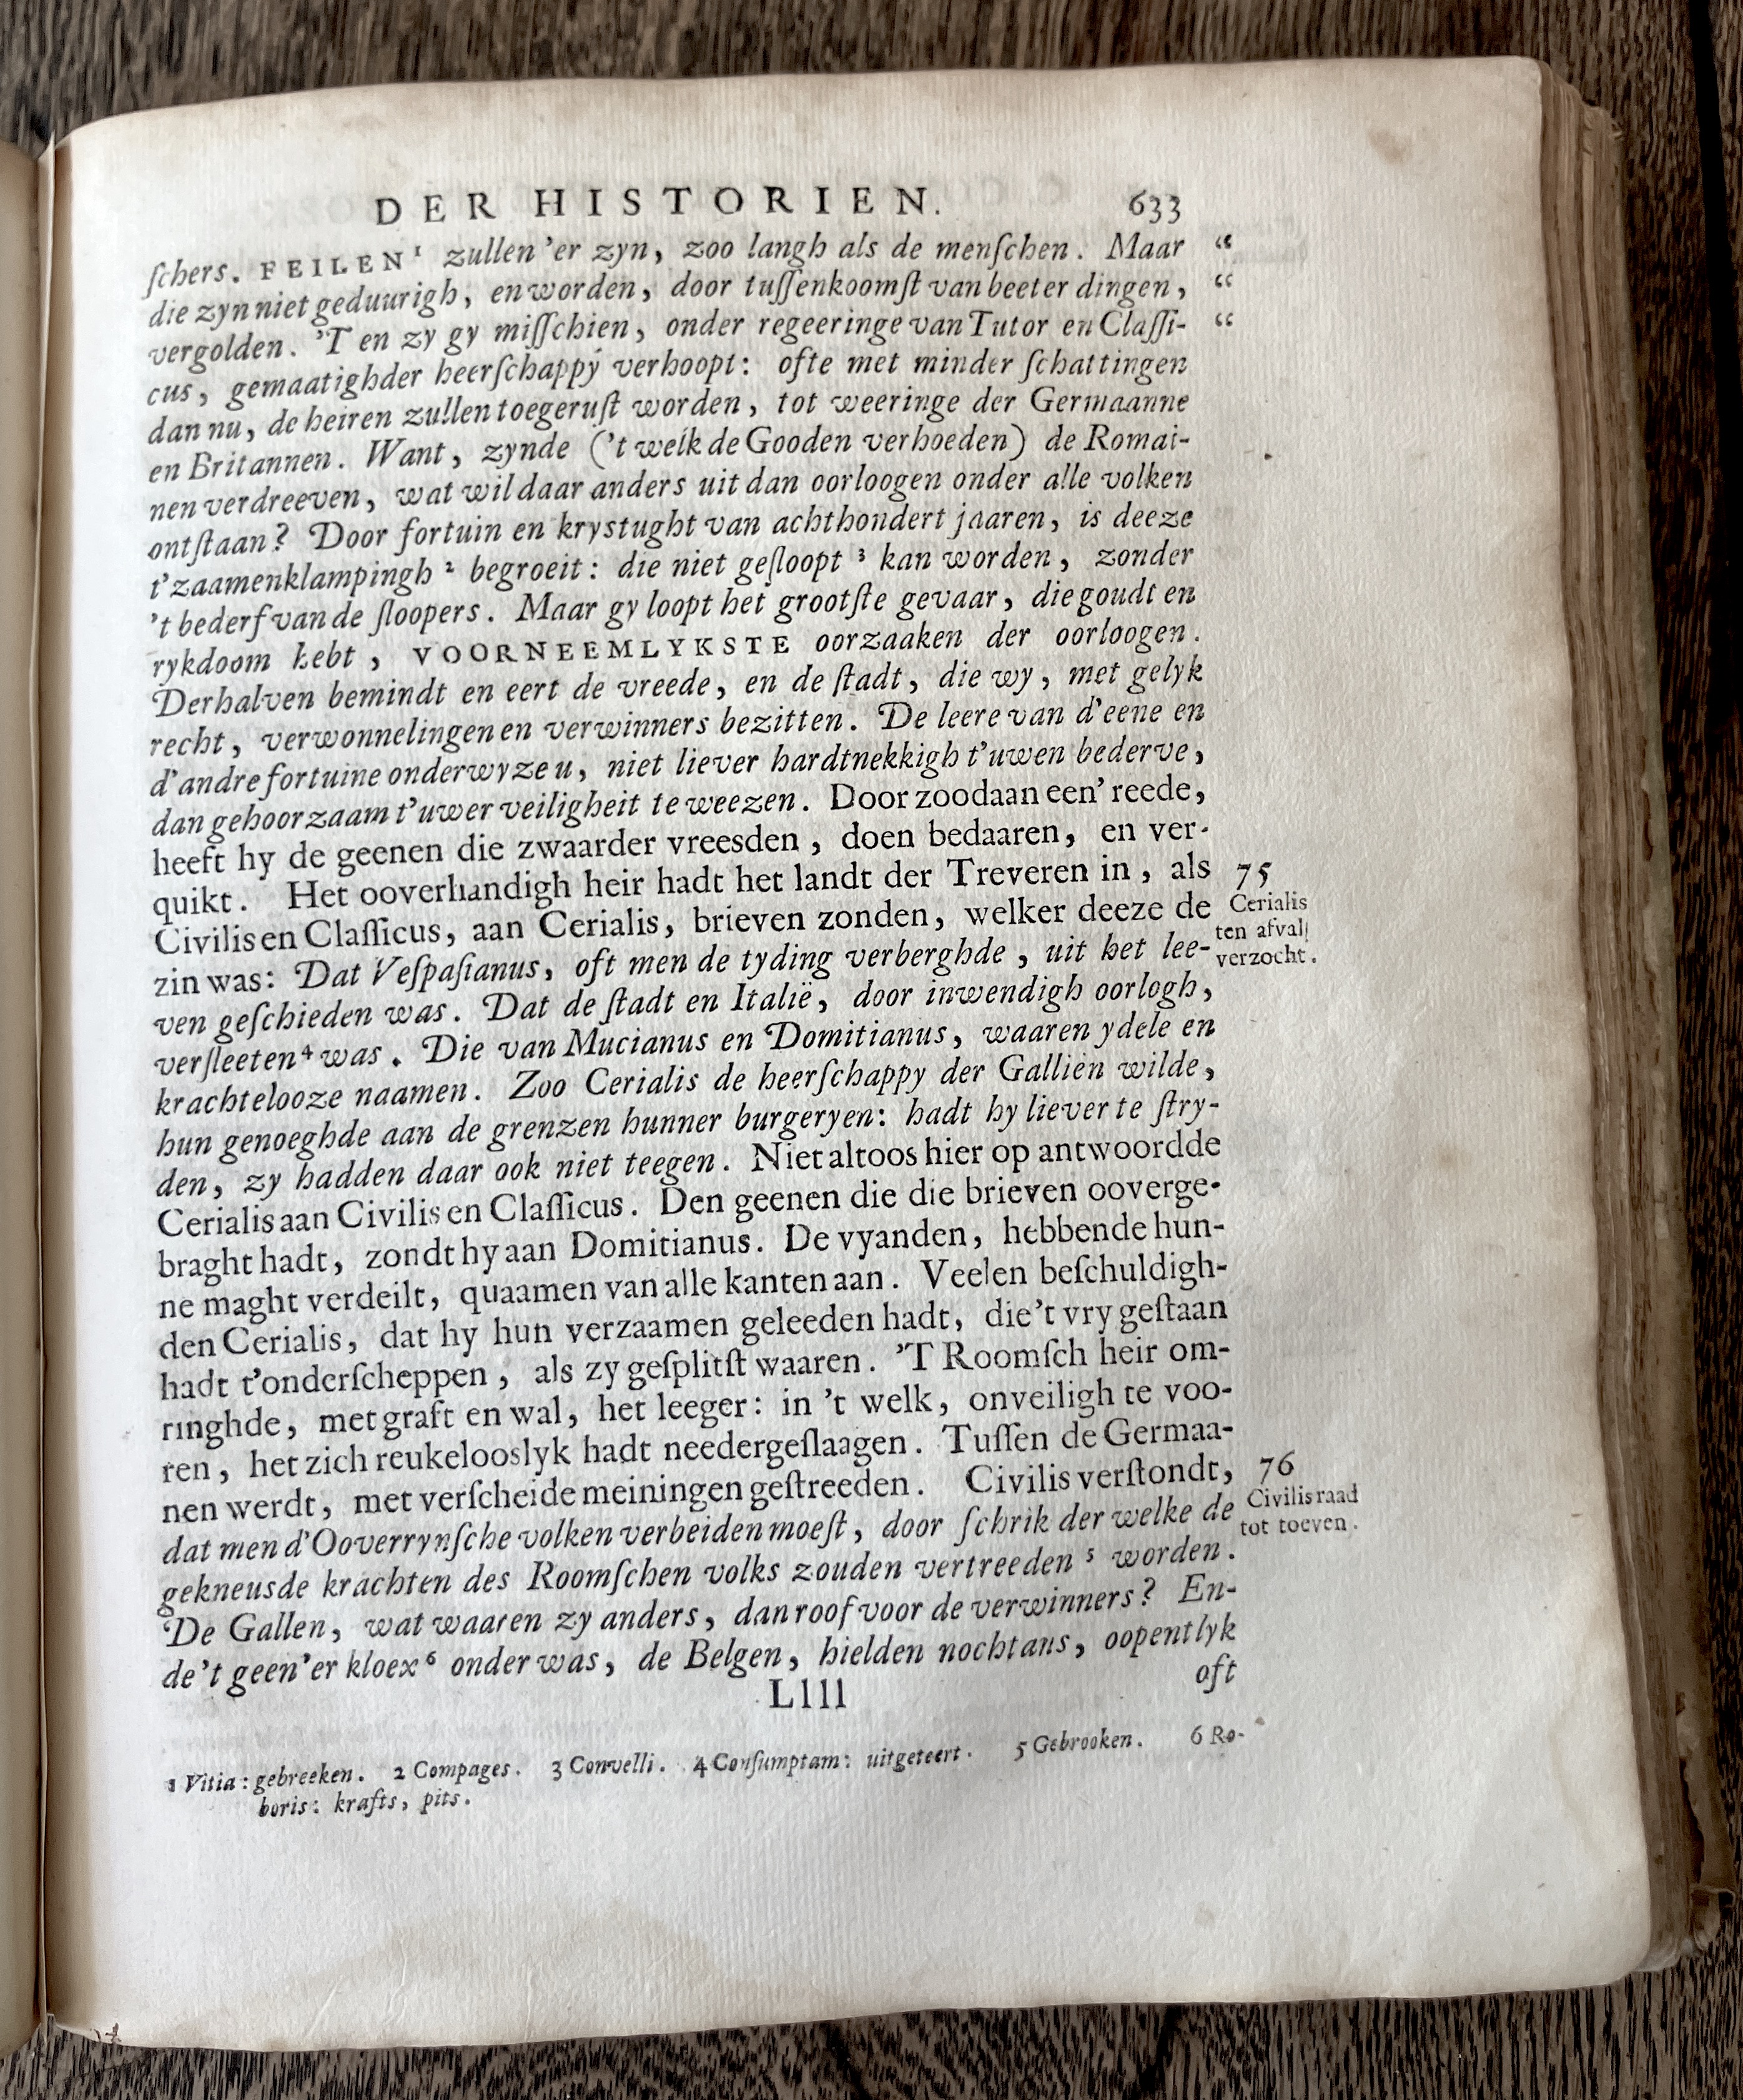 DER HISTORIEN. 633
ſchers. FEILEN¹ zullen 'er zyn, zoo langh als de menſchen. Maar “
die zyn niet geduurigh, en worden, door tuſſenkoomſt van beeter dingen, “
vergolden. 'T en zy gy miſſchien, onder regeeringe van Tutor en Claſſi- “
cus, gemaatighder heerſchappy verhoopt: ofte met minder ſchattingen
dan nu, de heiren zullen toegeruſt worden, tot weeringe der Germaanne
en Britannen. Want, zynde ('t welk de Gooden verhoeden) de Romai-
nen verdreeven, wat wil daar anders uit dan oorloogen onder alle volken
ontſtaan? Door fortuin en krystught van achthondert jaaren, is deeze
t'zaamenklampingh ² begroeit: die niet geſloopt ³ kan worden, zonder
't bederf van de ſloopers. Maar gy loopt het grootſte gevaar, die goudt en
rykdoom hebt, VOORNEEMLYKSTE oorzaaken der oorloogen.
Derhalven bemindt en eert de vreede, en de ſtadt, die wy, met gelyk
recht, verwonnelingen en verwinners bezitten. De leere van d'eene en
d'andre fortuine onderwyze u, niet liever hardtnekkigh t'uwen bederve,
dan gehoorzaam t'uwer veiligheit te weezen. Door zoodaan een' reede,
heeft hy de geenen die zwaarder vreesden, doen bedaaren, en ver-
quikt. Het ooverhandigh heir hadt het landt der Treveren in, als 75
Civilis en Claſſicus, aan Cerialis, brieven zonden, welker deeze de Cerialis
zin was: Dat Veſpaſianus, oft men de tyding verberghde, uit het lee- ten afval
ven geſchieden was. Dat de ſtadt en Italië, door inwendigh oorlogh, verzocht.
verſleeten⁴ was. Die van Mucianus en Domitianus, waaren ydele en
krachtelooze naamen. Zoo Cerialis de heerſchappy der Galliën wilde,
hun genoeghde aan de grenzen hunner burgeryen: hadt hy liever te ſtry-
den, zy hadden daar ook niet teegen. Niet altoos hier op antwoordde
Cerialis aan Civilis en Claſſicus. Den geenen die die brieven ooverge-
braght hadt, zondt hy aan Domitianus. De vyanden, hebbende hun-
ne maght verdeilt, quaamen van alle kanten aan. Veelen beſchuldigh-
den Cerialis, dat hy hun verzaamen geleeden hadt, die't vry geſtaan
hadt t'onderſcheppen, als zy geſplitſt waaren. 'T Roomſch heir om-
ringhde, met graft en wal, het leeger: in 't welk, onveiligh te voo-
ren, het zich reukelooslyk hadt needergeſlaagen. Tuſſen de Germaa-
nen werdt, met verſcheide meiningen geſtreeden. Civilis verſtondt, 76
dat men d'Ooverrynſche volken verbeiden moeſt, door ſchrik der welke de Civilis raad
gekneusde krachten des Roomſchen volks zouden vertreeden ⁵ worden. tot toeven.
De Gallen, wat waaren zy anders, dan roof voor de verwinners? En-
de't geen'er kloex⁶ onder was, de Belgen, hielden nochtans, oopentlyk
Llll oft
1 Vitia: gebreeken. 2 Compages. 3 Convelli. 4 Conſumptam: uitgeteert. 5 Gebrooken. 6 Ro-
boris: krafts, pits.